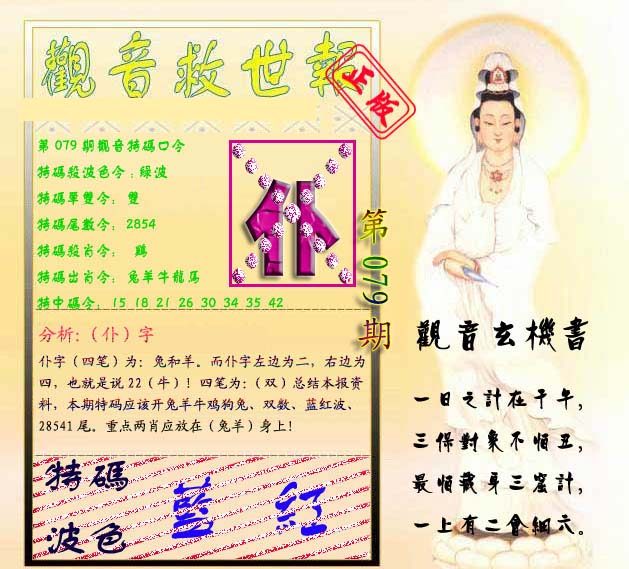 觀音救世報
正版
第079期觀音特碼口令
特碼殺波色令:綠波
特碼單雙令: 雙
特碼尾數令: 2854
特碼殺肖令: 鷄
特碼出肖令: 兔羊牛龍馬
特中碼令: 15 18 21 26 30 34 35 42
仆
第079期
分析:(仆)字
仆字(四笔)为:兔和羊。而仆字左边为二,右边为
四,也就是说22(牛)!四笔为:(双)总结本报资
料,本期特码应该开兔羊牛鸡狗兔、双数、蓝红波、
28541尾。重点两肖应放在(兔羊)身上!
特碼
波色
藍 紅
觀音玄機書
一日之計在于午,
三保對象不怕丑,
最怕載身三窟計,
一上有二會細六。